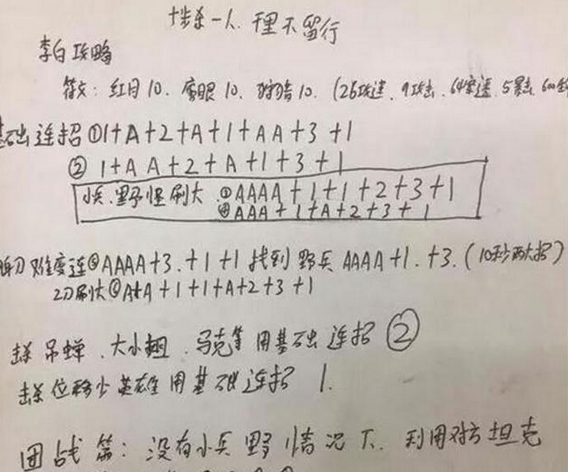 十步杀一人.千里不留行
李白攻略
符文:红月10、鹰眼10、狩猎10.(26攻速、9攻击、
基础连招①1+A+2+A+1+AA+3+1
② 1+AA+2+A+1+3+1
小兵.野怪刷大.③AAAA+1+1+2+3+1
④AAA+1+A+2+3+1
难度连⑤AAAA+3.+1+1找到野兵AAAA+1.+3.(10秒两大招)
刷大⑥A+A+1+1+A+2+3+1
击杀吊蝉.大小翘.马克等用基础连招②
击杀位移少英雄用基础连招1.
团战篇:没有小兵野情况下.利用对方坦克